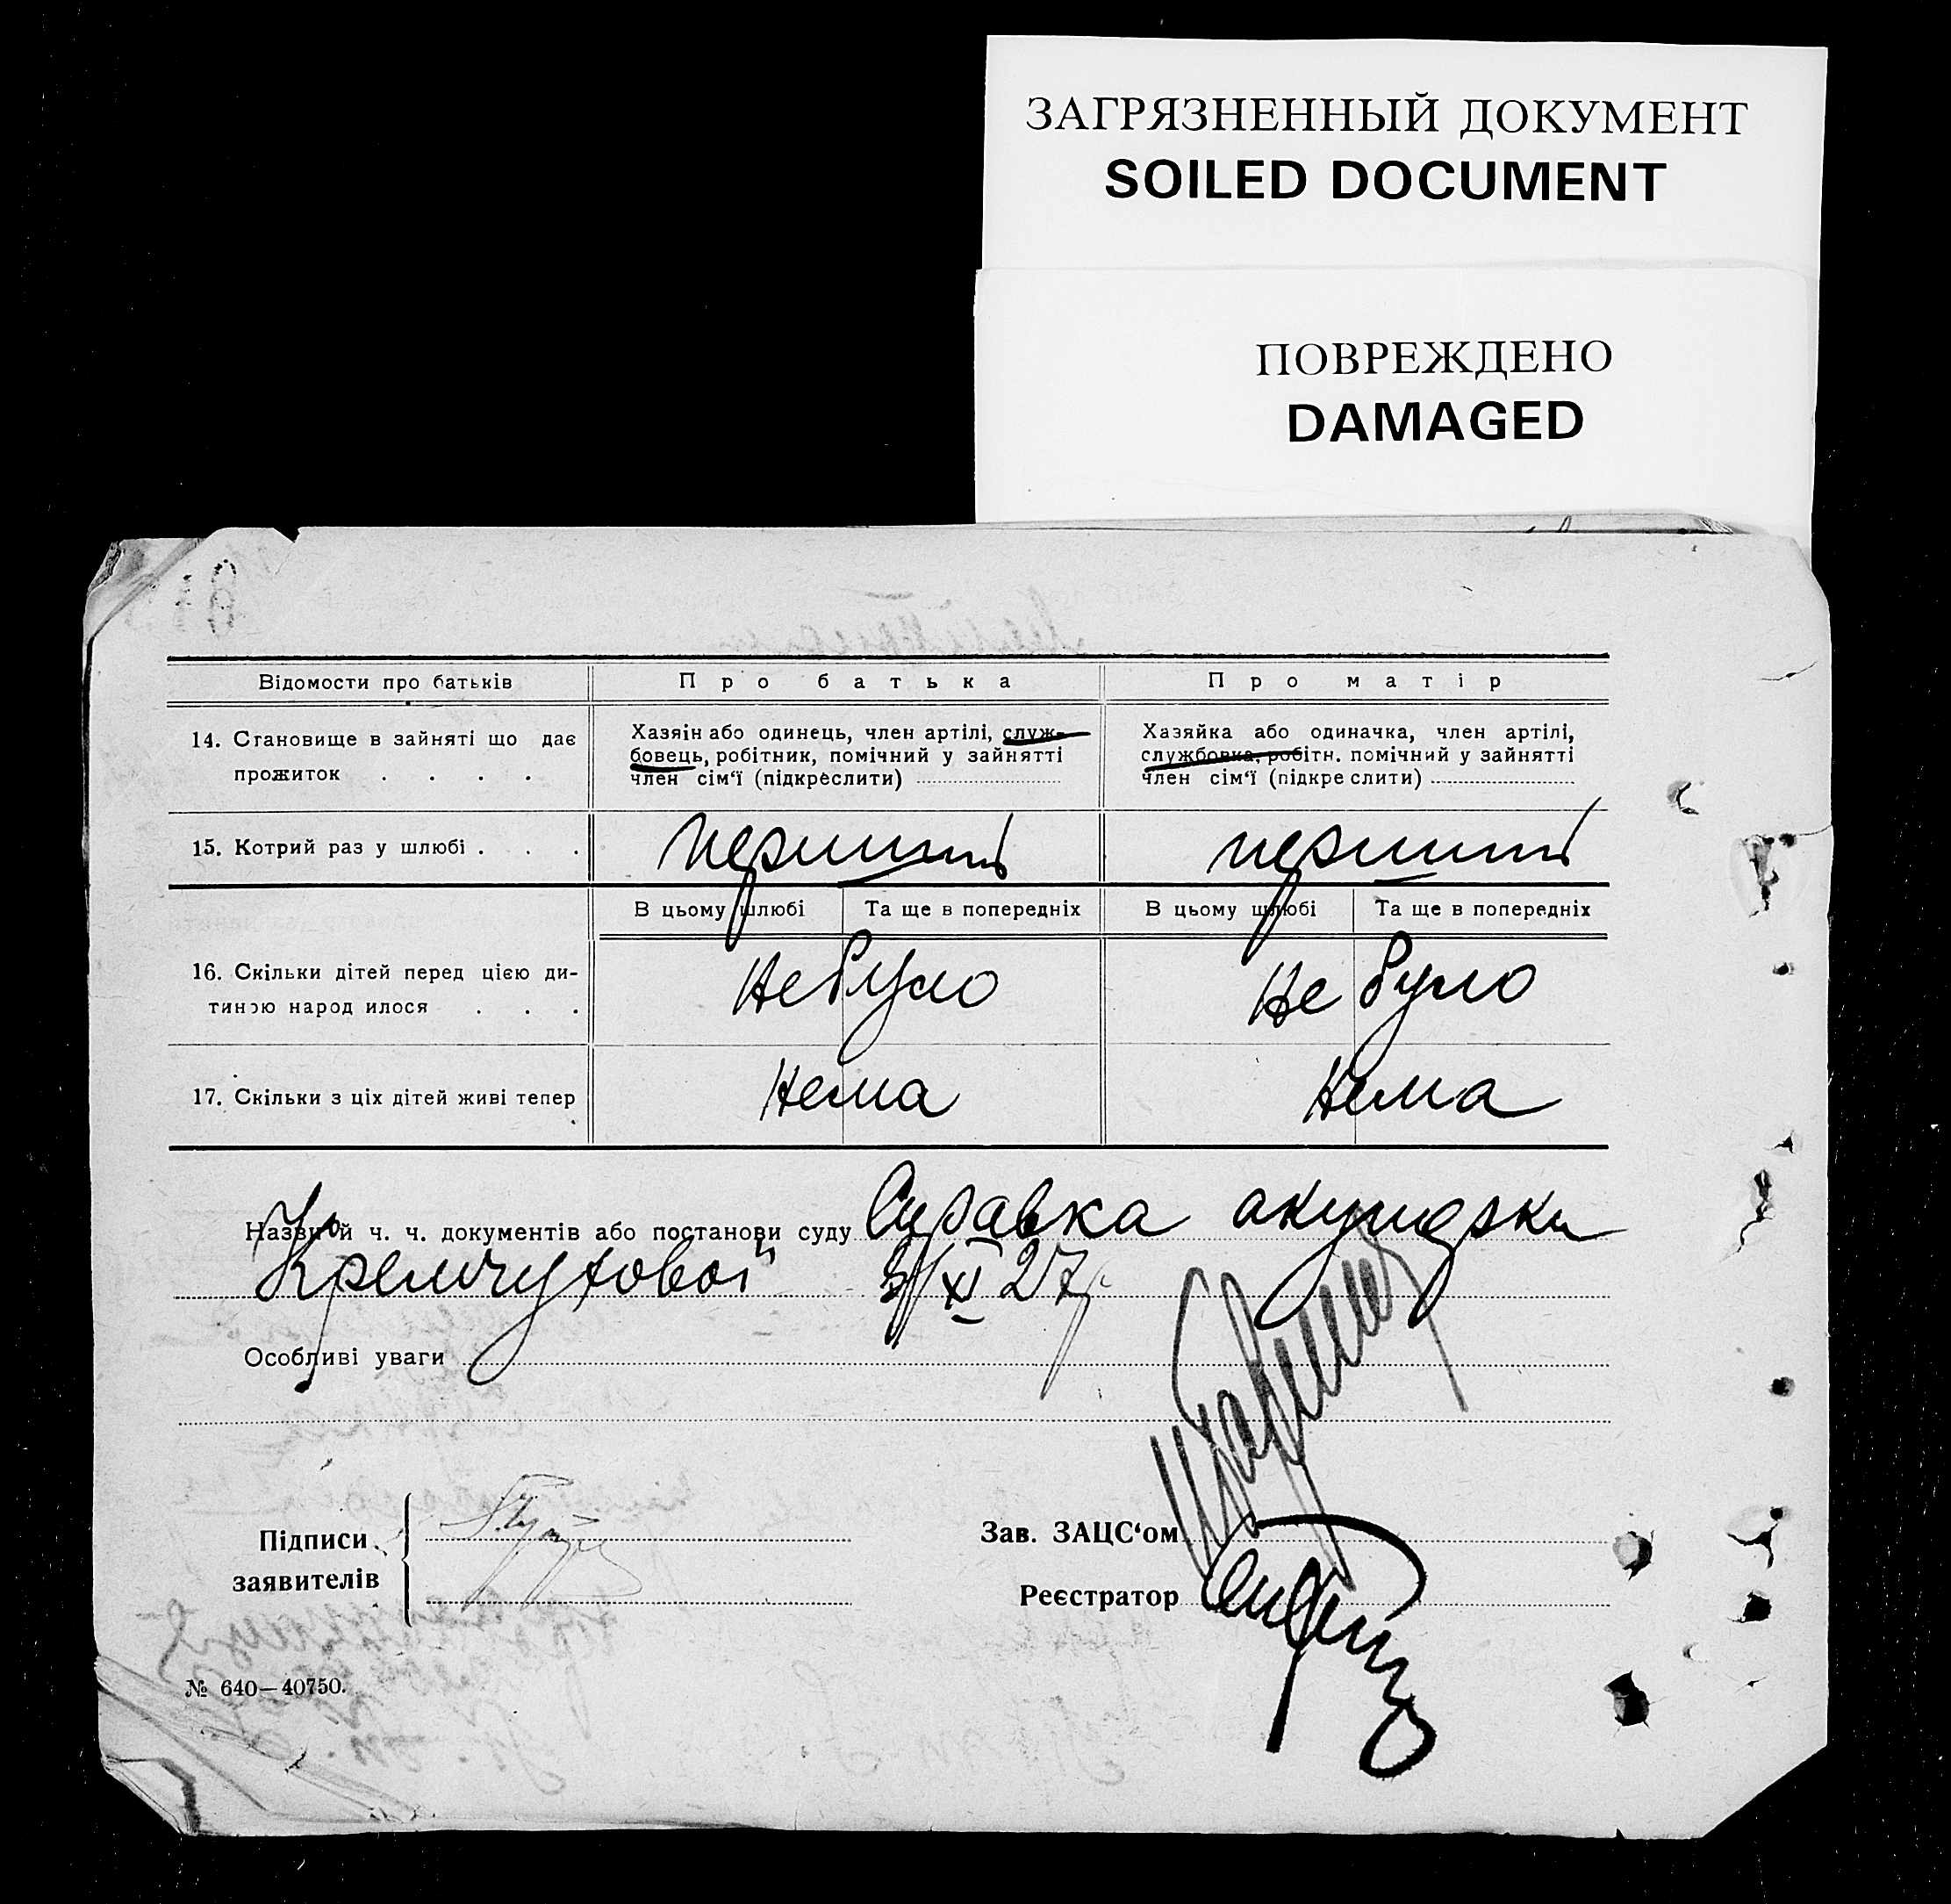 ЗАГРЯЗНЕННЫЙ ДОКУМЕНТ
SOILED DOCUMENT
ПОВРЕЖДЕНО
DAMAGED
Відомости про батьків
Про батька
Про матір
14. Становище в зайняті що дає
прожиток . . . .
Хазяін або одинець, член артілі, служ-
бовець, робітник, помічний у зайнятті
член сім‘ї (підкреслити)
Хазяйка або одиначка, член артілі,
службовка, робітн. помічний у зайнятті
член сім‘ї (підкре слити)
15. Котрий раз у шлюбі . . .
перший
перший
В цьому шлюбі
Та ще в попередніх
В цьому шлюбі
Та ще в попередніх
16. Скільки дітей перед цією ди-
тиною народ илося . . .
Не було
Не було
17. Скільки з ціх дітей живі тепер
Нема
Нема
Назви й ч. ч. документів або постанови суду Справка акушерки
XI 27 р
Особливі уваги
Підписи
заявителів
Зав. ЗАЦС‘ом
Реєстратор
№ 640—40750.